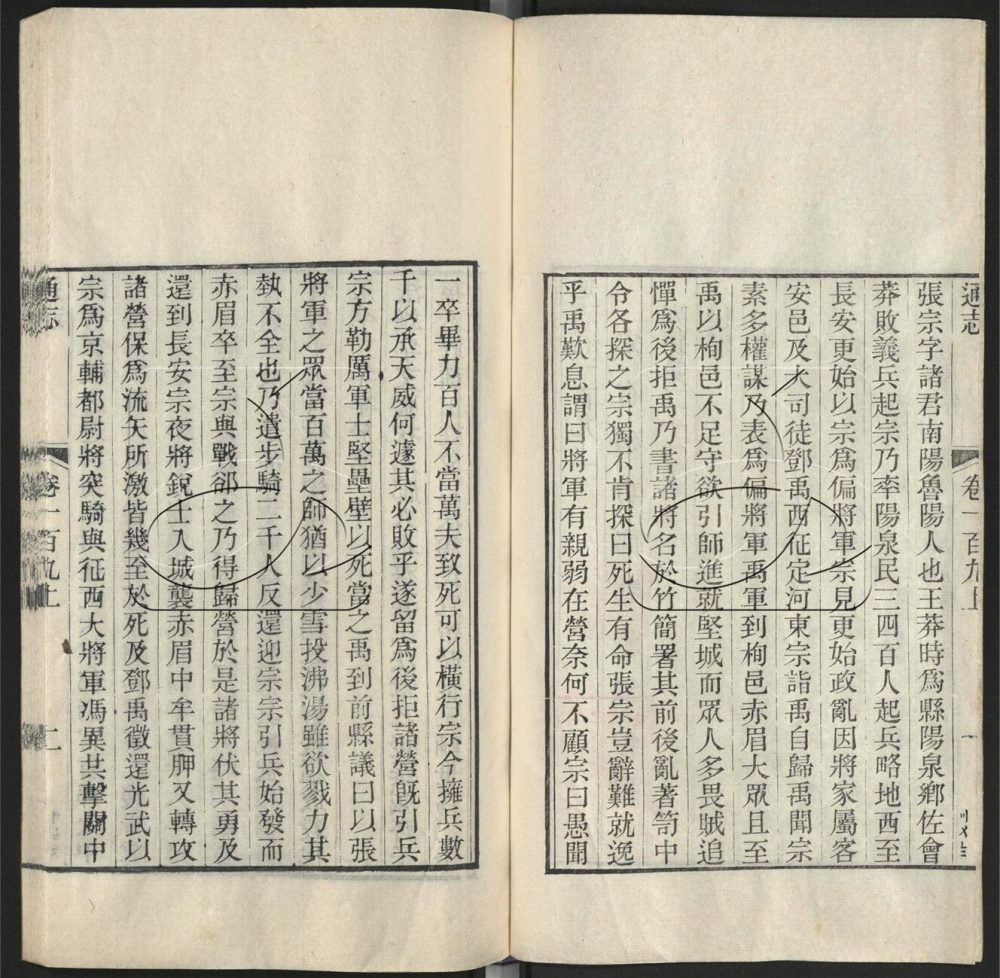 通志
卷一百九上
一
張宗字諸君南陽魯陽人也王莽時爲縣陽泉鄉佐會
莽敗義兵起宗乃率陽泉民三四百人起兵略地西至
長安更始以宗爲偏將軍宗見更始政亂因將家屬客
安邑及大司徒鄧禹西征定河東宗詣禹自歸禹聞宗
素多權謀乃表爲偏將軍禹軍到栒邑赤眉大眾且至
禹以栒邑不足守欲引師進就堅城而眾人多畏賊追
憚爲後拒禹乃書諸將名於竹簡署其前後亂著笥中
令各探之宗獨不肯探曰死生有命張宗豈辭難就逸
乎禹歎息謂曰將軍有親弱在營奈何不顧宗曰愚聞
一卒畢力百人不當萬夫致死可以橫行宗今擁兵數
千以承天威何遽其必敗乎遂留爲後拒諸營旣引兵
宗方勒厲軍士堅壘壁以死當之禹到前縣議曰以張
將軍之眾當百萬之師猶以少雪投沸湯雖欲戮力其
埶不全也乃遣步騎二千人反還迎宗宗引兵始發而
赤眉卒至宗與戰郤之乃得歸營於是諸將伏其勇及
還到長安宗夜將銳士入城襲赤眉中牟貫胛又轉攻
諸營保爲流矢所激皆幾至於死及鄧禹徵還光武以
宗爲京輔都尉將突騎與征西大將軍馮異共擊關中
通志
卷一百九上
二